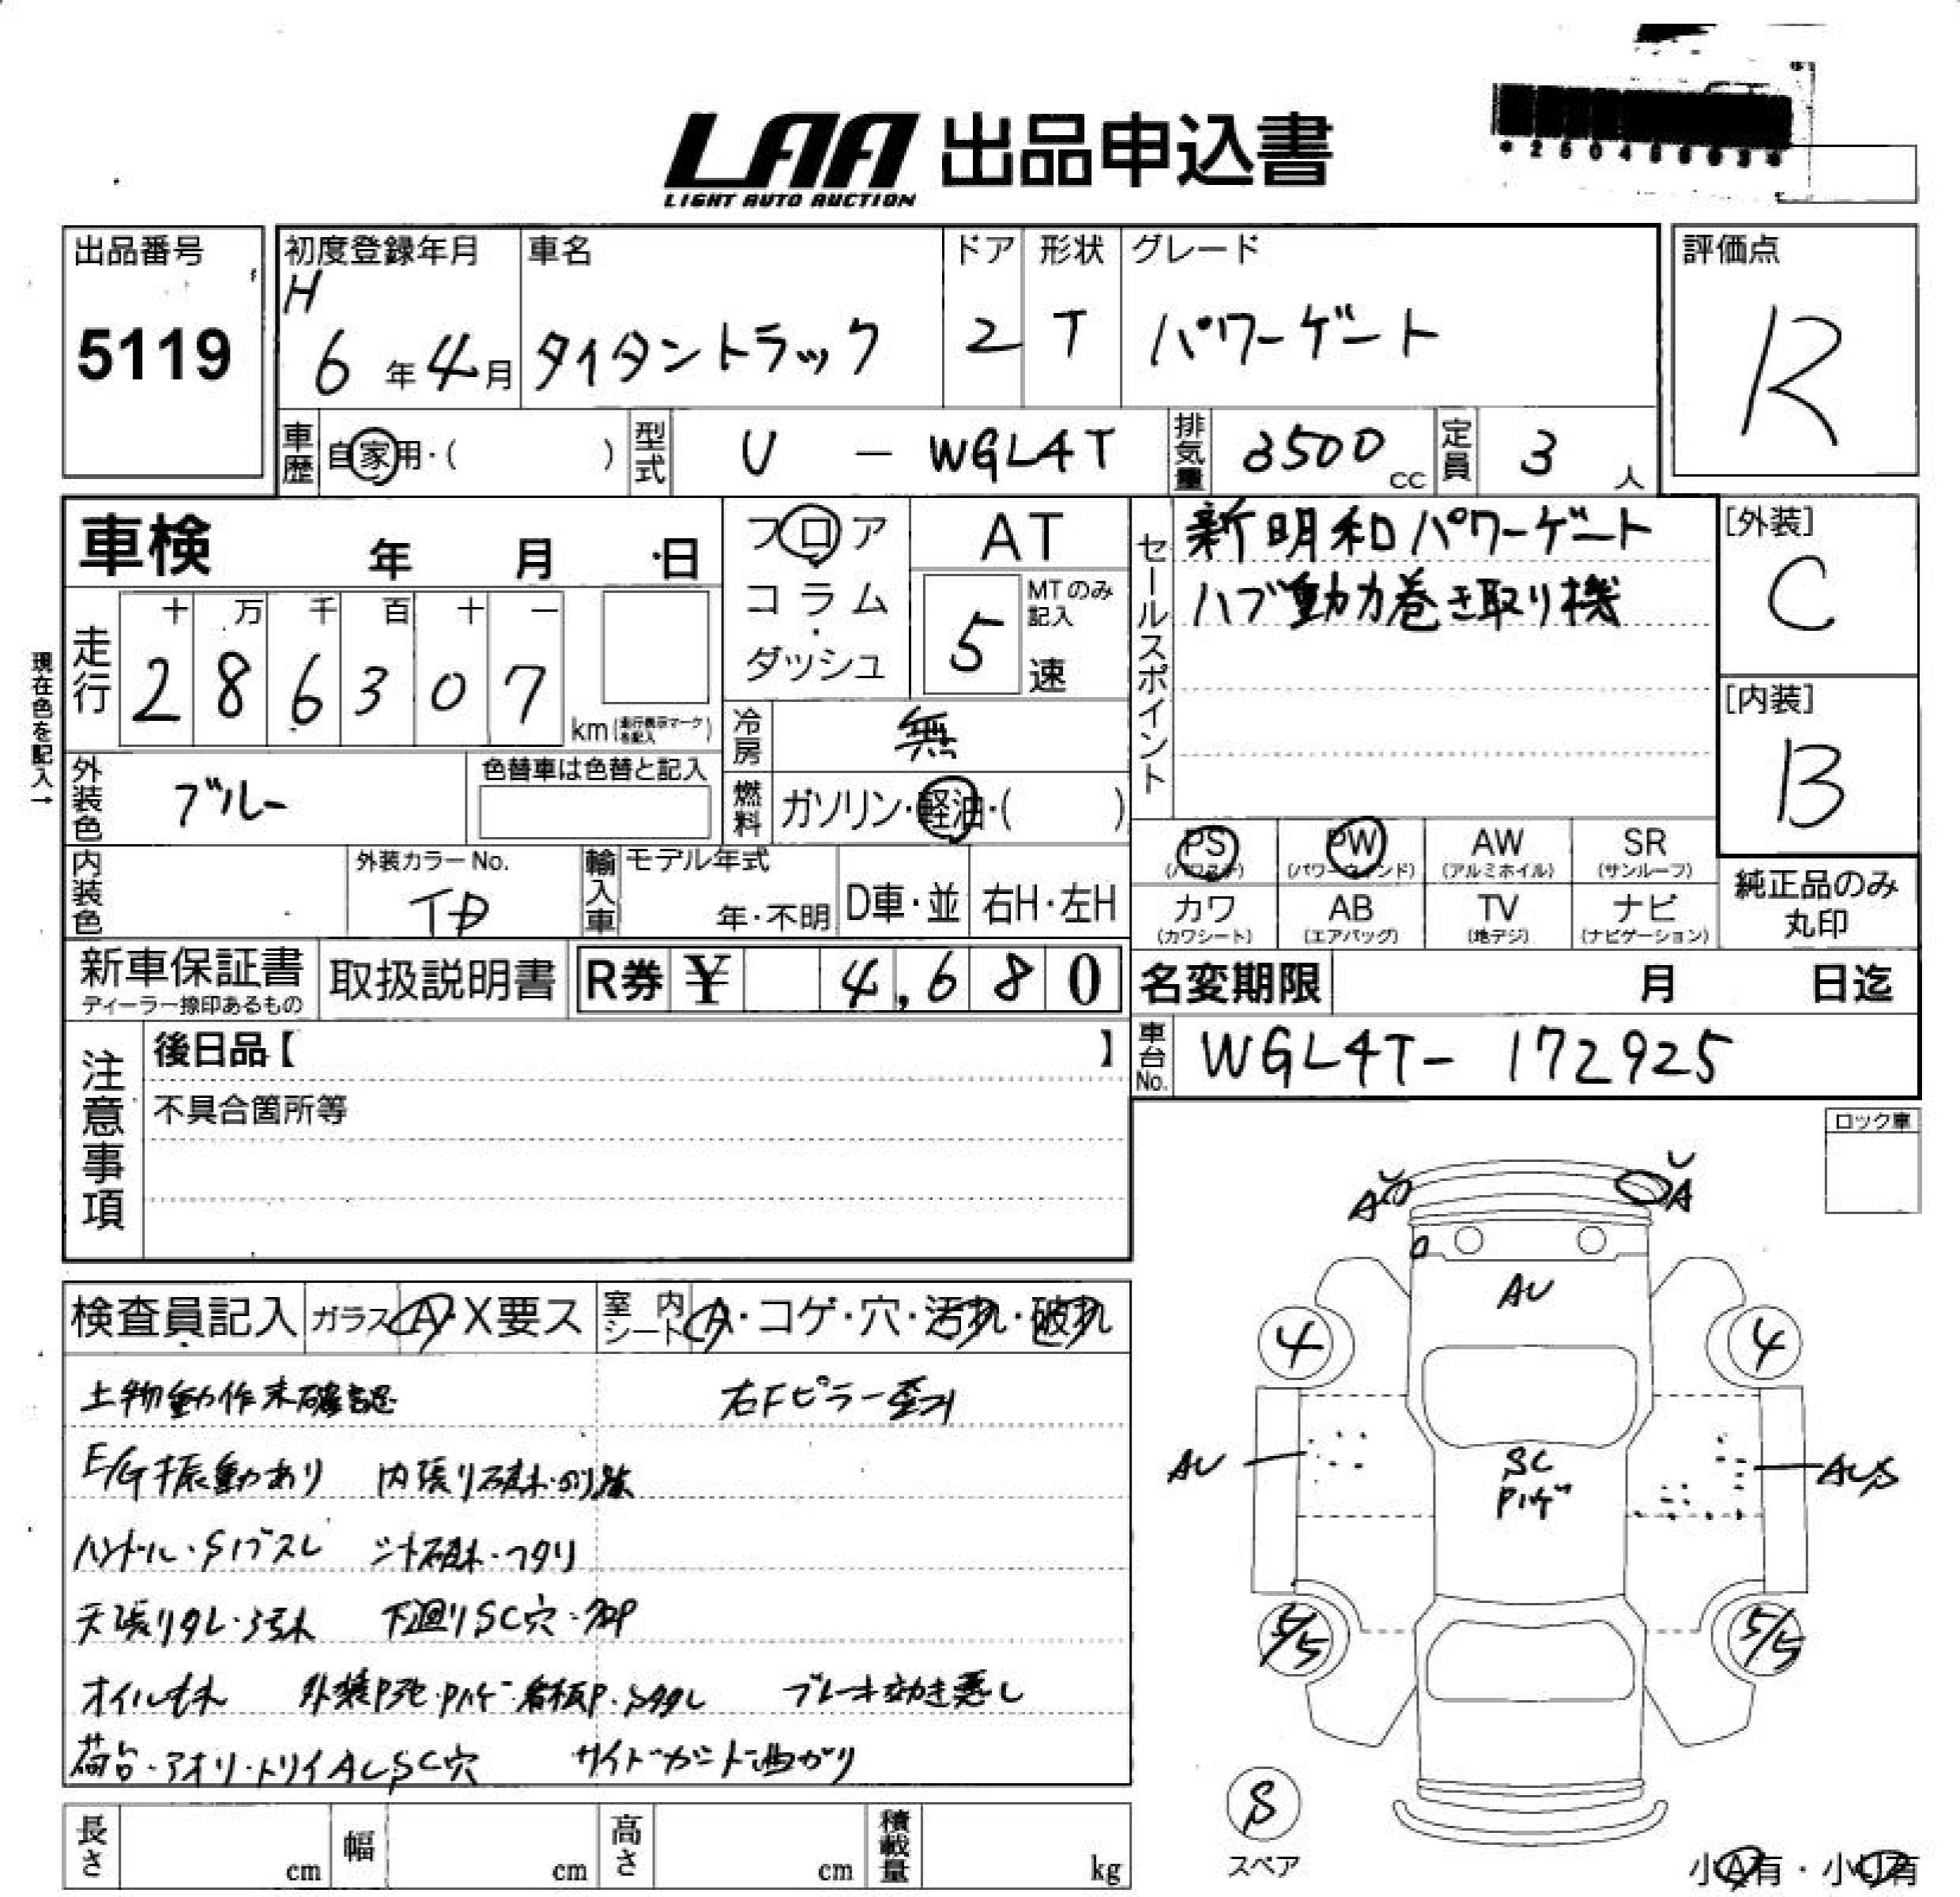 LAA 出品申込書
LIGHT AUTO AUCTION
出品番号
5119
初度登録年月 車名 ドア 形状 グレード
H 6年4月 タイタントラック 2 T パワーゲート
評価点
R
車歴 自家用・( ) 型式 U - WGL4T 排気量 3500 cc 定員 3 人
車検 年 月 日
フロア
コラム
・
ダッシュ
AT
MTのみ記入
5 速
セールスポイント
新明和パワーゲート
ハブ動力巻き取り機
[外装]
C
[内装]
B
現在色を記入→
走行 十 万 千 百 十 一
2 8 6 3 0 7 km(走行表示マークを記入)
冷房 無
外装色 ブルー 色替車は色替と記入
燃料 ガソリン・軽油・( )
PS AW SR
PW
(パワステ) (パワーウィンド) (アルミホイル) (サンルーフ)
カワ AB TV ナビ
(カワシート) (エアバッグ) (地デジ) (ナビゲーション)
純正品のみ
丸印
内装色 外装カラーNo. 輸入車 モデル年式
年・不明 D車・並 右H・左H
新車保証書 取扱説明書 R券 ¥ 4,680
ディーラー捺印あるもの
名変期限 月 日迄
車台No. WGL4T- 172925
注意事項
後日品【 】
不具合箇所等
ロック車
検査員記入 ガラス A・X要ス 室内シート A・コゲ・穴・汚れ・破れ
上物動作未確認 右Fピラー歪み
E/G振動あり 内張り破れ・
ハンドル・Sノブスレ
天張りタレ・汚れ 下廻りSC穴・
オイルもれ 外装P ・Pハゲ・看板P・ ブレーキ効き悪し
荷台・アオリ・トリイAUSC穴 サイドガード曲がり
U
A
U
A
AU
4
4
AU
SC
Pハゲ
AUS
5/5
5/5
S
スペア
小A有・小U有
長さ cm 幅 cm 高さ cm 積載量 kg